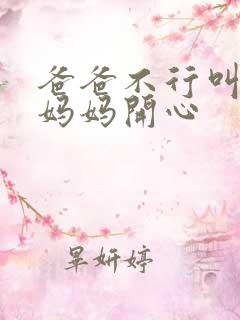 爸爸不行叫
妈妈開心
皐妍婷